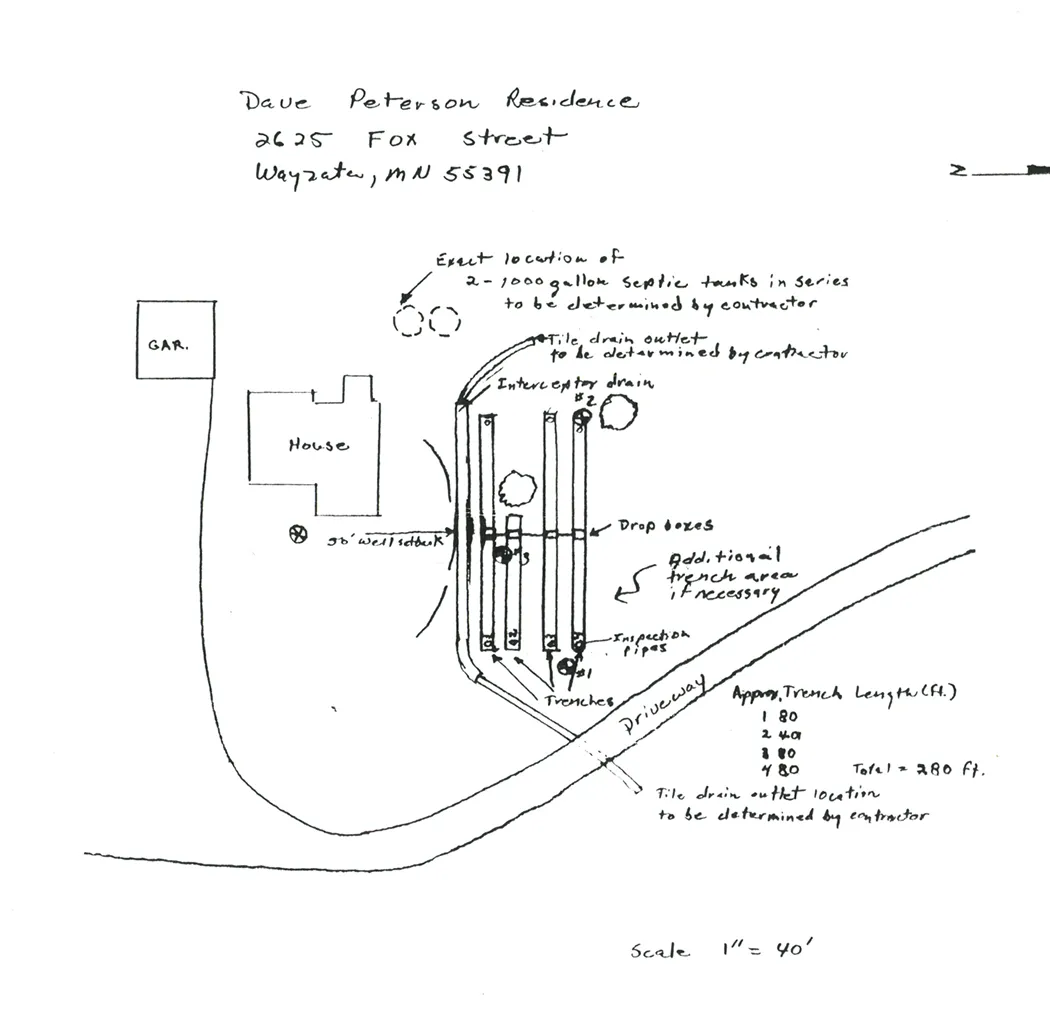 Dave Peterson Residence
2625 Fox Street
Wayzata, MN 55391
N
Exact location of
2-1000 gallon septic tanks in series
to be determined by contractor
GAR.
Tile drain outlet
to be determined by contractor
Interceptor drain
#2
House
Drop boxes
50' well setback
#3
Additional
trench area
if necessary
Inspection
pipes
#1
Trenches
Driveway
Approx. Trench Length (ft.)
1 80
2 40
3 80
4 80 Total = 280 ft.
Tile drain outlet location
to be determined by contractor
Scale 1" = 40'